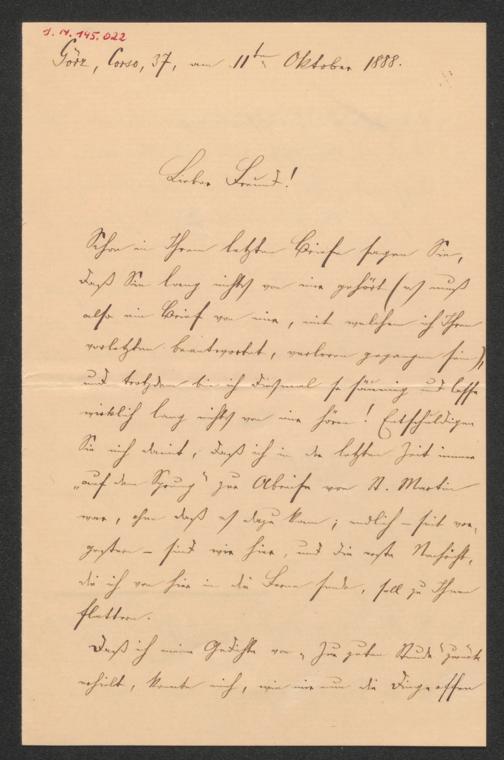 J. N. 145.022
Görz, Corso, 37, am 11ten Oktober 1888.
Lieber Freund!
Schon in Ihrem letzten Briefe sagen Sie,
daß Sie lang nichts von mir gehört (es muß
also ein Brief von mir, mit welchem ich Ihren
vorletzten beantwortet, verloren gegangen sein),
und trotzdem bin ich diesmal so säumig und lasse
wirklich lang nichts von mir hören! Entschuldigen
Sie mich damit, daß ich in der letzten Zeit immer
„auf dem Sprung“ zur Abreise von St. Martin
war, ohne daß es dazu kam; endlich – seit vor-
gestern – sind wir hier, und die erste Nachricht,
die ich von hier in die Ferne sende, soll zu Ihnen
flattern.
Daß ich meine Gedichte von „Zur guten Stunde“ zurück
erhielt, konnte mich, wie mir nun die Dinge offen